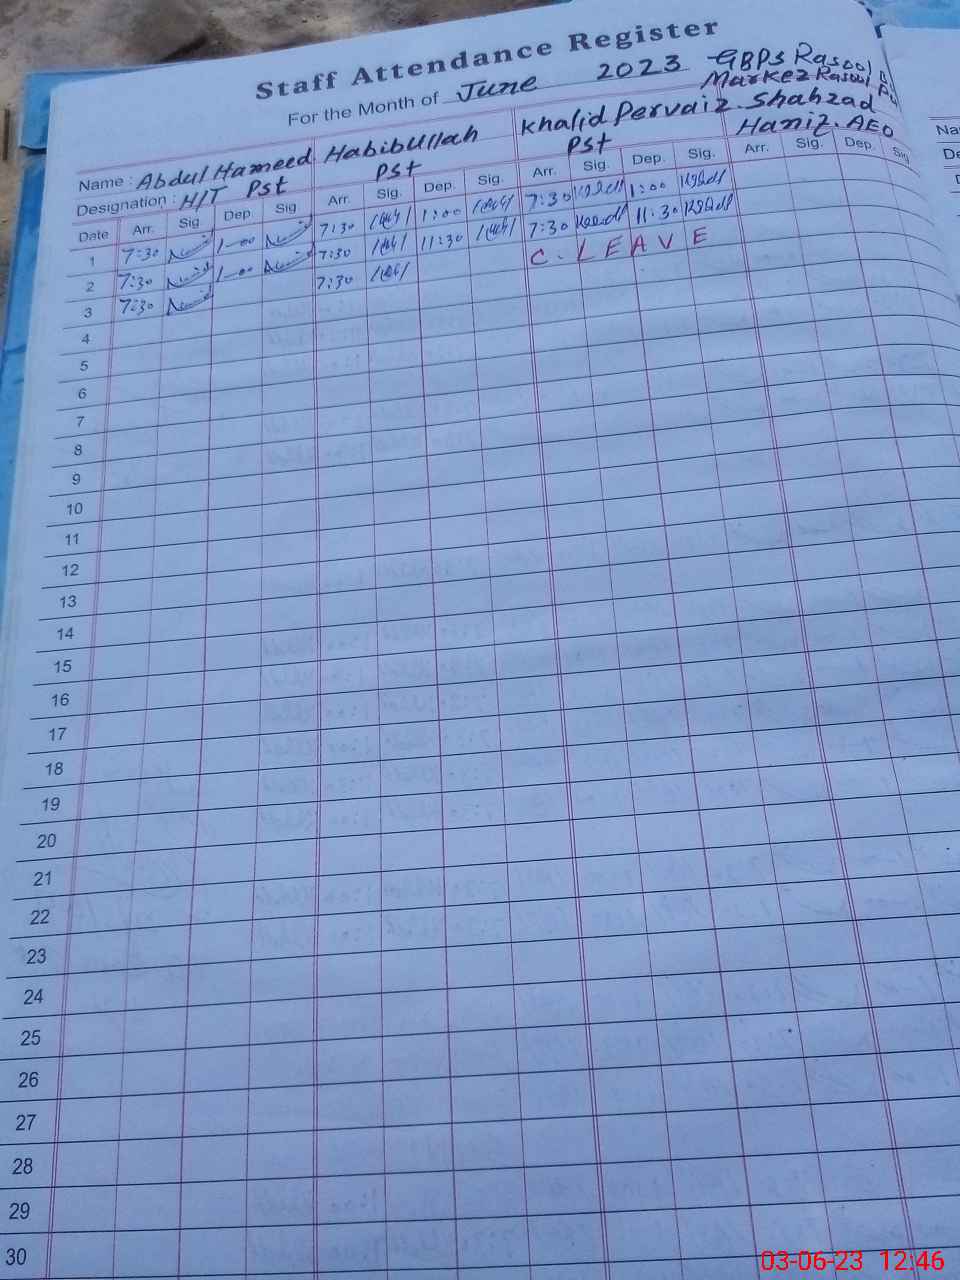 Staff Attendance Register
For the Month of June 2023 GBPS Rasool
Markez Rasool
Name : Abdul Hameed Habibullah Khalid Pervaiz Shahzad
Designation : H/T Pst Pst Pst Haniz. AEO
Date Arr. Sig. Dep. Sig. Arr. Sig. Dep. Sig. Arr. Sig. Dep. Sig. Arr. Sig. Dep. Sig
1 7:30 1-00 7:30 1:00 7:30 1:00
2 7:30 1-00 7:30 11:30 7:30 11:30
3 7:30 7:30 C. LEAVE
4
5
6
7
8
9
10
11
12
13
14
15
16
17
18
19
20
21
22
23
24
25
26
27
28
29
30
Na
De
03-06-23 12:46